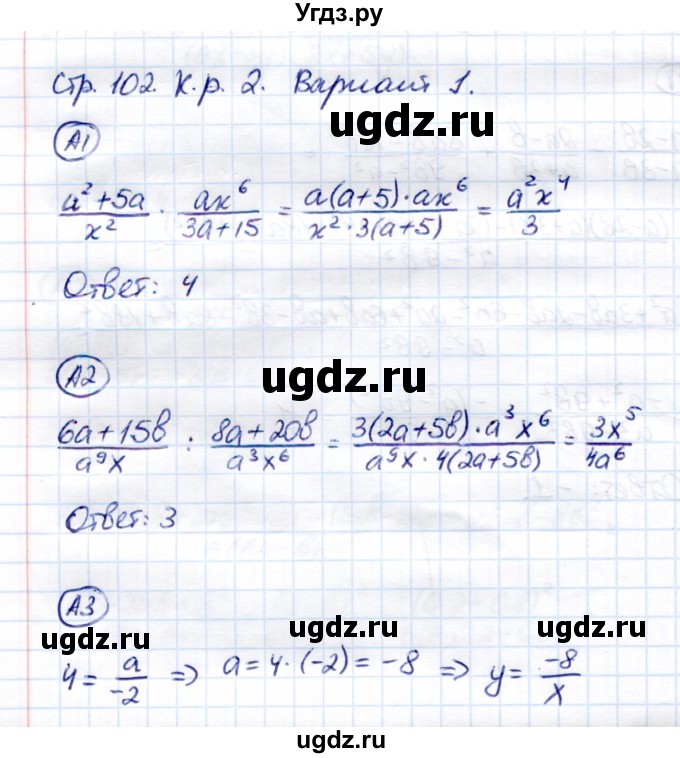 Угдз.ру
Стр. 102. К.р. 2. Вариант 1.
ugdz.ru
А1
(a² + 5a)/x² · ax⁶/(3a + 15) = (a(a + 5) · ax⁶)/(x² · 3(a + 5)) = a²x⁴/3
Ответ: 4
А2
ugdz.ru
(6a + 15b)/(a⁹x) : (8a + 20b)/(a³x⁶) = (3(2a + 5b) · a³x⁶)/(a⁹x · 4(2a + 5b)) = 3x⁵/4a⁶
Ответ: 3
ugdz.ru
А3
ugdz.ru ugdz.ru
4 = a/-2 => a = 4 · (-2) = -8 => y = -8/x
ugdz.ru